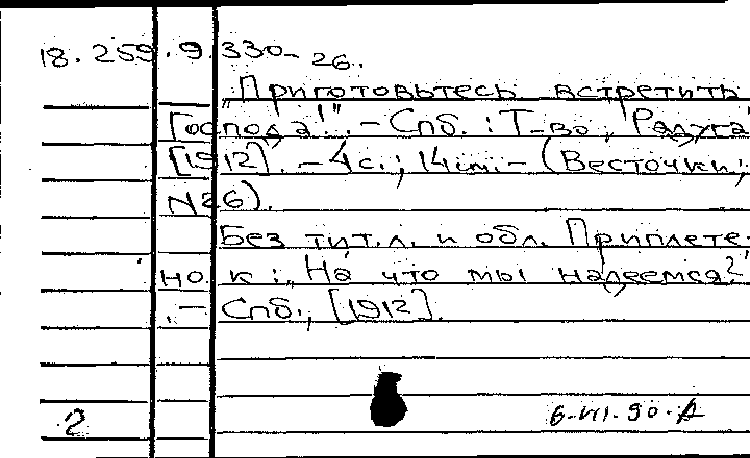 18.259.9.330-26.
„Приготовьтесь встретить
Господа!". – Спб.: Т-во „Радуга"
[1912]. – 4с.; 14см. – (Весточки;
N26).
Без тит.л. и обл. Приплете-
но к: „На что мы надеемся?"
. – Спб., [1912].
2
6.VII.90.А